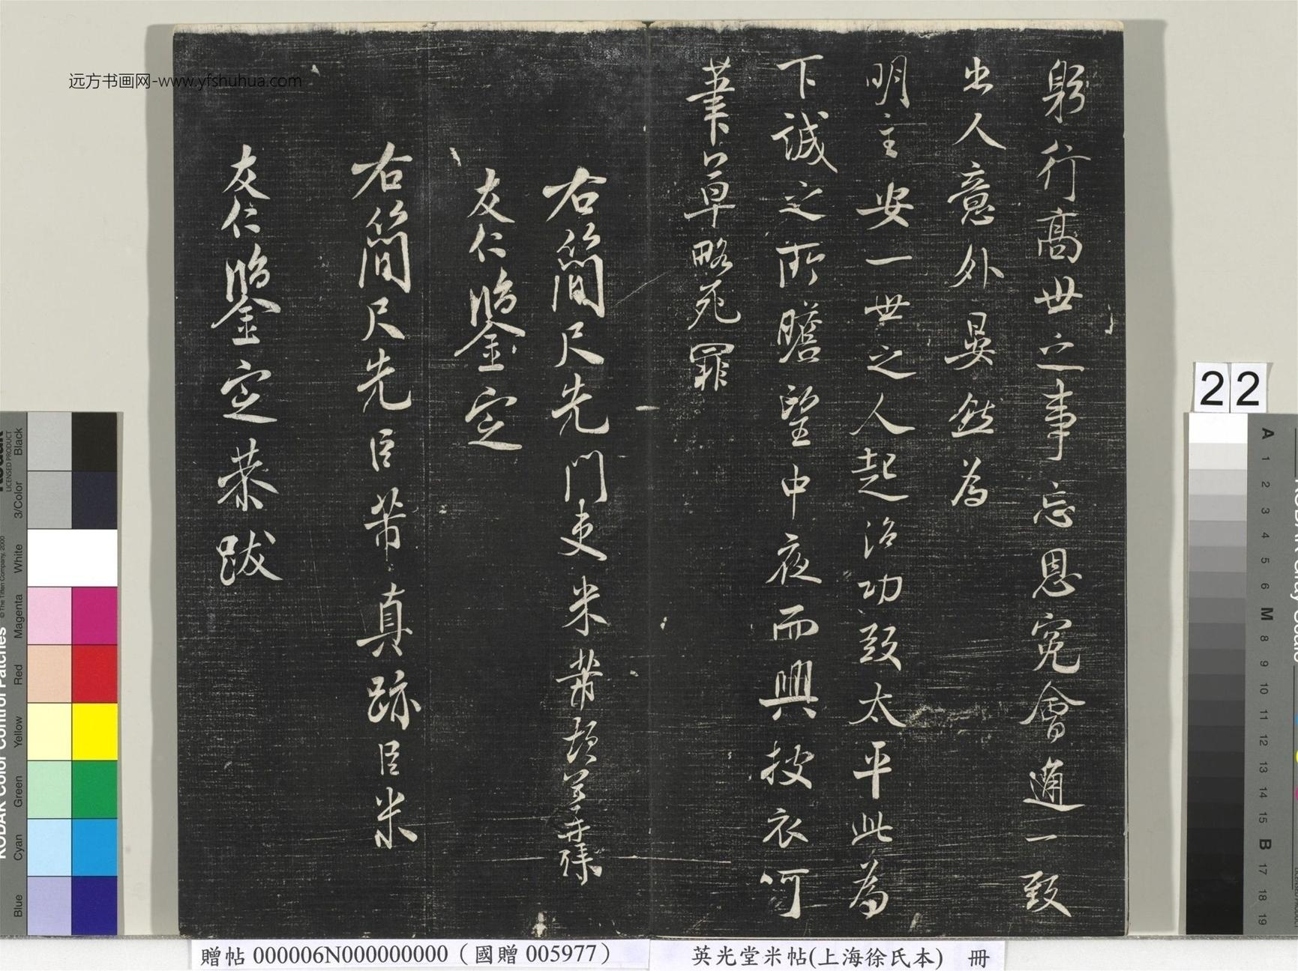 躬行高世之事忘恩冤會通一致
出人意外晏然為
明主安一世之人起治功致太平此為
下誠之所瞻望中夜而興披衣阿
筆草略死罪
右簡尺先門吏米芾頓首再拜
友仁鑒定
右簡尺先臣芾真跡臣米
友仁鑒定恭跋
远方书画网-www.yfshuhua.com
22
贈帖 000006N000000000（國贈 005977）
英光堂米帖(上海徐氏本) 冊
KODAK Color Control Patches
Blue Cyan Green Yellow Red Magenta White 3/Color Black
A 1 2 3 4 5 6 M 8 9 10 11 12 13 14 15 B 17 18 19